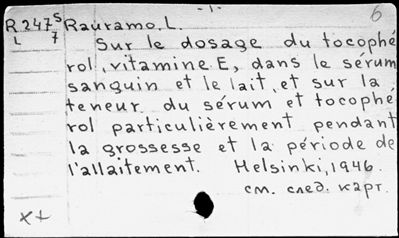 - 1. -
6
R247 S Rauramo, L.
L 7
Sur le dosage du tocophé
rol, vitamine E, dans le sérum
sanguin et le lait, et sur la
teneur du sérum et tocophé
rol particulièrement pendant
la grossesse et la période de
l'allaitement. Helsinki, 1946.
см. след. карт.
x+